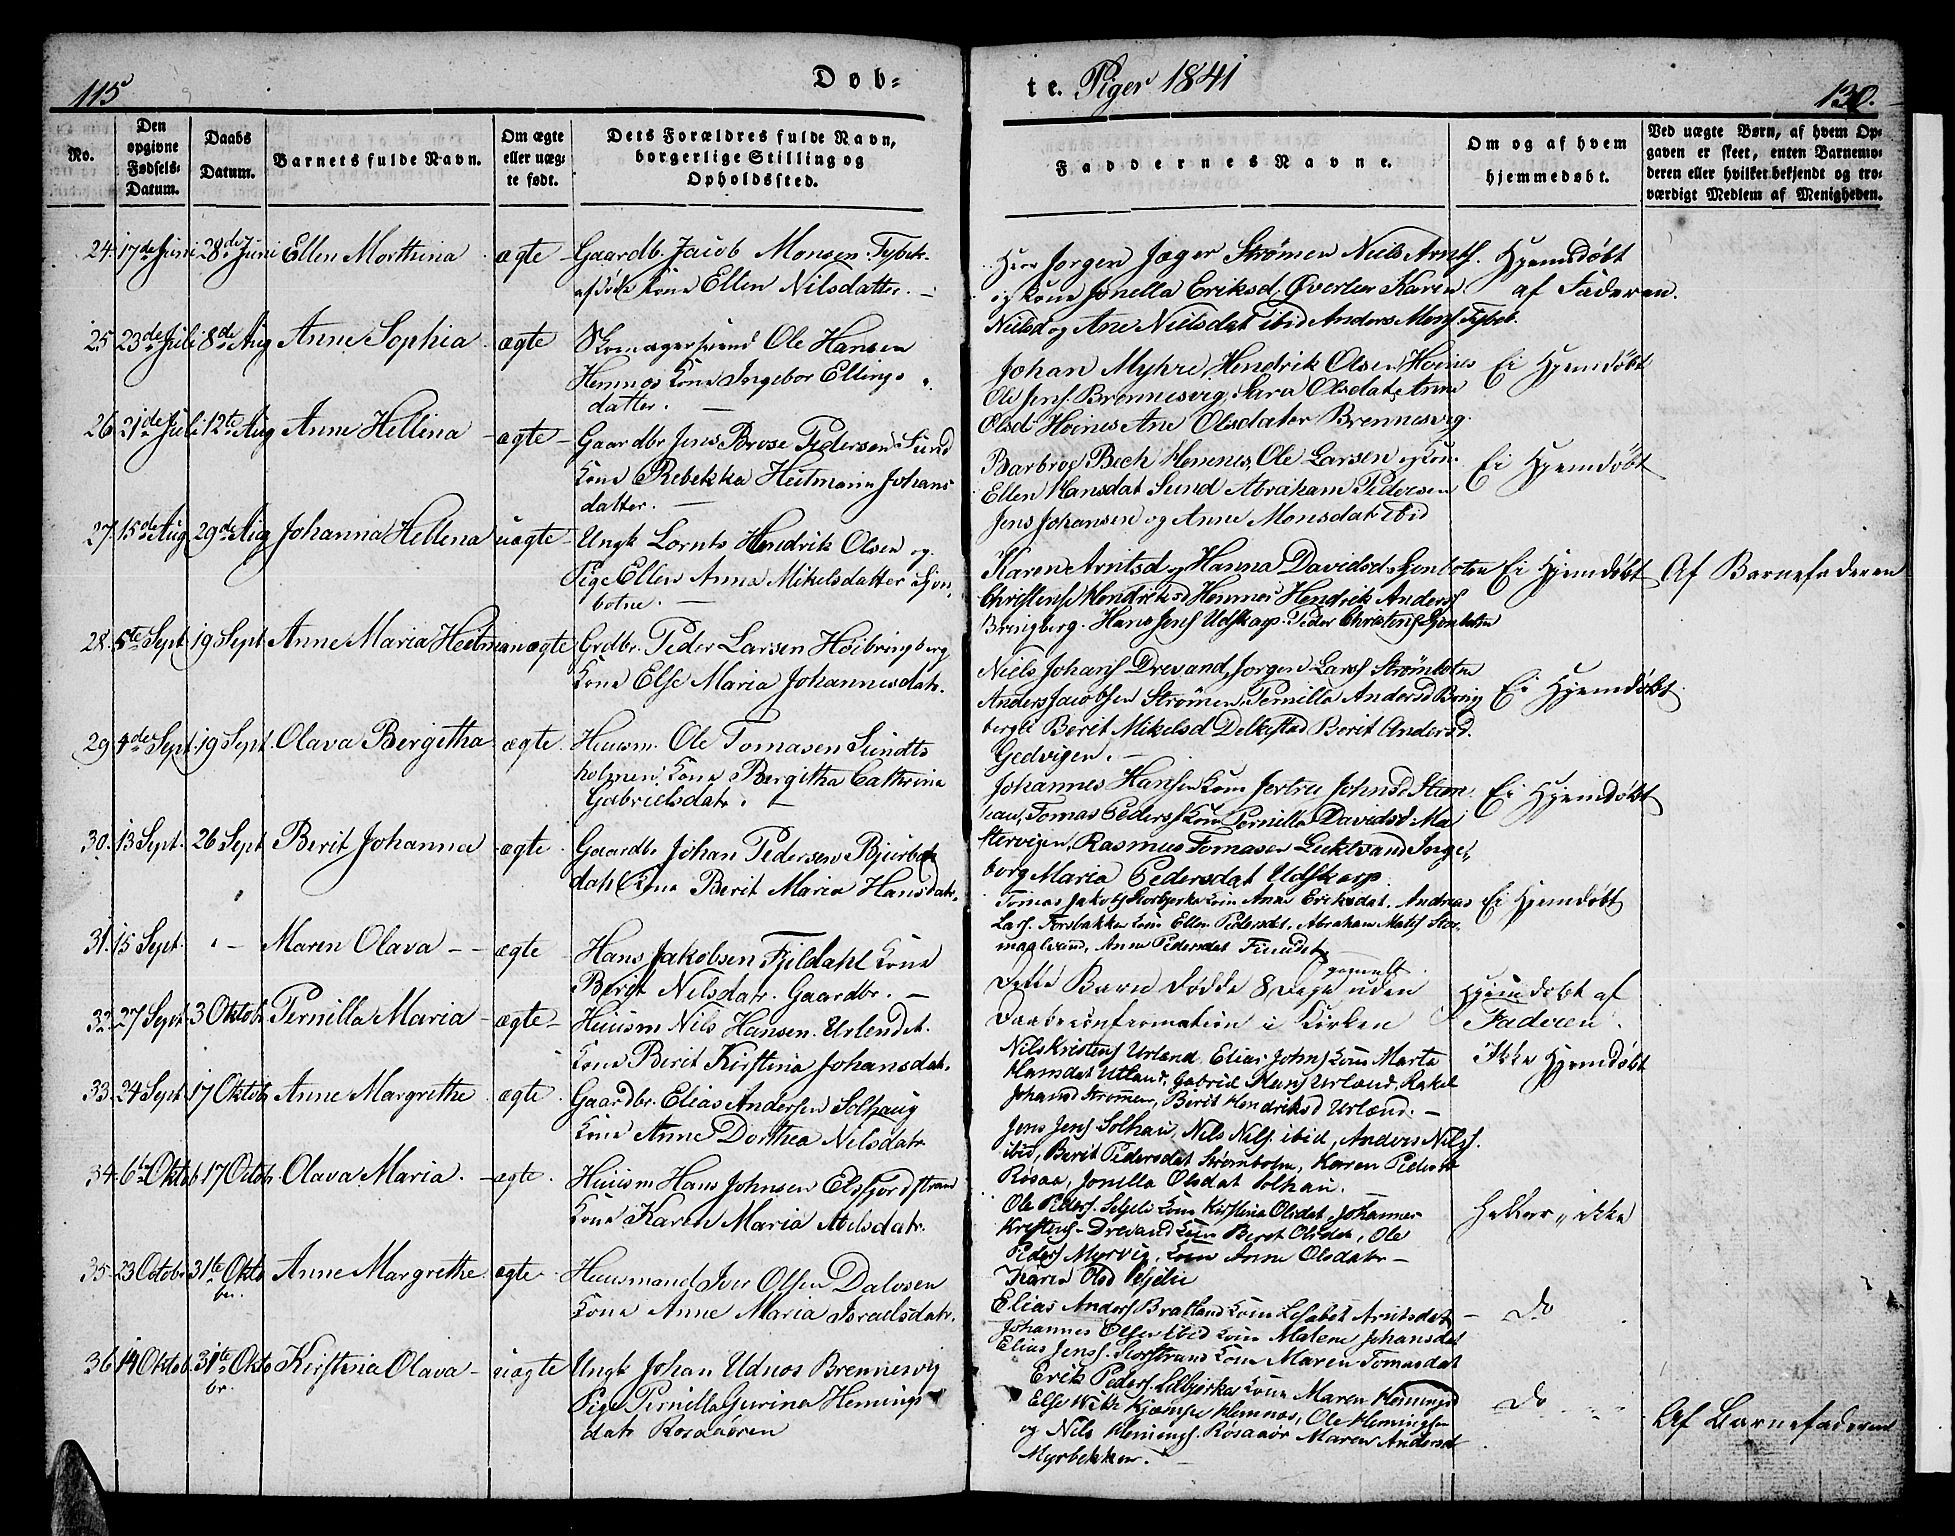 115
Døb-
te. Piger 1841
130.
No.
Den opgivne Fødsels-Datum.
Daabs Datum.
Barnets fulde Navn.
Om ægte eller uæg-te født.
Dets Forældres fulde Navn, borgerlige Stilling og Opholdssted.
Faddernes Navne.
Om og af hvem hjemmedøbt.
Ved uægte Børn, af hvem Op-gaven er skeet, enten Barnemo-deren eller hvilket bekjendt og tro-værdigt Medlem af Menigheden.
24. 17de Juni 28de Juni Ellen Morthina ægte Gaardb. Jacob Monsen Fybek
afdøde Kone Ellen Nilsdatter.
Jørgen Jæger Strømen Niels Arnts.
og Kone Jonella Eriksd, Øverlen Karen
Nielsd og Ane Nielsdat ibid Anders Mons. Fybek.
Hjemdøbt
af Faderen.
25 23de Juli 8de Aug Anne Sophia ægte Skomagersvend Ole Hansen
Hemnes Kone Ingebor Ellings
datter.
Johan Myhre, Hendrik Olsen Høines
Ole Jens. Brennesvig, Sara Olsdat, Anne
Olsd Høines Ane Olsdater Brennesvig.
Ei Hjemdøbt
26 21de Juli 12te Aug Anne Hellina ægte Gaardbr Jens Brose Pedersen Sund
Kone Rebekka Heitmann Johans
datter.
Barbroe Bech Hemnes, Ole Larsen og Kon.
Ellen Hansdat Sund Abraham Pedersen
Jens Johansen og Anne Monsdat ibid
Ei Hjemdøbt
27. 15de Aug 29de Aug Johanna Hellena uægte Ungk Lornts Hendrik Olsen og
Pige Ellen Anna Mikelsdatter Sjon,
botne.
Karen Arntsd og Hanna Davidsd Sjonbotn
Christense Hendriksd Hemnes Hendrik Anders
Bringberg. Hans Jens Udskarp. Peder Christens Sjonbotn
Ei Hjemdøbt
Af Barnefaderen
28. 5te Sept 19 Sept Anne Maria Heitman ægte Grdbr. Peder Larsen Høibringberg
Kone Else Maria Johannesdatr.
Niels Johans Drevand, Jørgen Lars Strømbotn
Anders Jacobsen Strømen, Pernilla Andersd Bring
berget Berit Mikelsd Delkestad Berit Andersd.
Gedvigen.
Ei Hjemdøbt.
29 4de Sept 19 Sept. Olava Bergitha ægte Huusm. Ole Tomasen Sundts
holmen Kone Bergitha Cathrina
Gabrielsdatr.
Johannes Hansen Kone Jertru Johnsd Sten
hau, Tomas Peders Kone Pernilla Davidsd Ma
stervigen, Rasmus Tomasen Luktvand Inge,
borg Maria Pedersdat Udskarp.
Ei Hjemdøbt
30. 13 Sept. 26 Sept Berit Johanna ægte Gaardbr Johan Pedersen Bjurbek
dahl Kone Berit Maria Hansdatr.
Tomas Jakobs Storbjerka Kone Anne Eriksdat. Andreas
Lars. Forsbakken Kone Ellen Pedersdt. Abraham Mats Stor
maalvand, Anne Pedersdat Finndst
Ei Hjemdøbt
31. 15 Sept. Maren Olava ægte Hans Jakobsen Fjeldahl Kone
Berit Nilsdatr. Gaardbr.
Dette Barn døde 8 Dage gamelt uden
Daabsconfermation i Kirken
Hjemdøbt af
Faderen.
32. 27 Sept 3 Oktob. Pernilla Maria ægte Huusm Nils Hansen. Urlendet.
Kone Berit Kirstina Johansdatr.
Nils Kristens Urland. Elias Johns Kone Marta
Hansdat Utland, Gabriel Hans Urland, Rakel
Johansd Strømen, Berit Hendriksd Urland.
Ikke Hjemdøbt
33. 24 Sept 17 Oktob. Anne Margrethe ægte Gaardbr. Elias Andersen Solhaug
Kone Anne Dorthea Nilsdatr
Jens Jens Solhau, Nils Nils. ibid, Anders Nils.
ibid, Berit Pedersdat Strømholm, Karen Pedersd
Røsaa, Jonella Olsdat Solhau.
34. 6te Oktob 17 Octob. Olava Maria. ægte. Huusm Hans Johnsen Elsfjordstran
Kone Karen Maria Abelsdatr.
Ole Peders. Seljeli Kone Kirstina Olsdat, Johannes
Kristens. Drevand Kone Berit Olsdat, Ole
Peders Myrvig, Kone Anne Olsdatr
Karen Olsd Seljelie
heller ikke
35 23 Octobr 31te Okto
br. Anne Margrethe ægte Huusmand Iver Olsen Dalosen
Kone Anne Maria Israelsdatr.
Elias Anders Bratland Kone Lisabet Arntsdat
Johannes Olsen ibid Kone Malene Johansdat
Elias Jens. Storstrand Kone Maren Tomasdat
Do
36 14 Oktob. 31te Okto
br. Kirstina Olava uægte Ungk Johan Udnos Brennesvig
Pige Pernilla Gurina Hemings
datr Røsaaøren
Erik Peders. Lilbjerka Kone Maren Hemingsd
Else Wike Kjæmpe Hemnæs, Ole Hemingsen
og Nils Hemings. Røsaaør Maren Andersd
Myrbekken.
Do
Af Barnefaderen